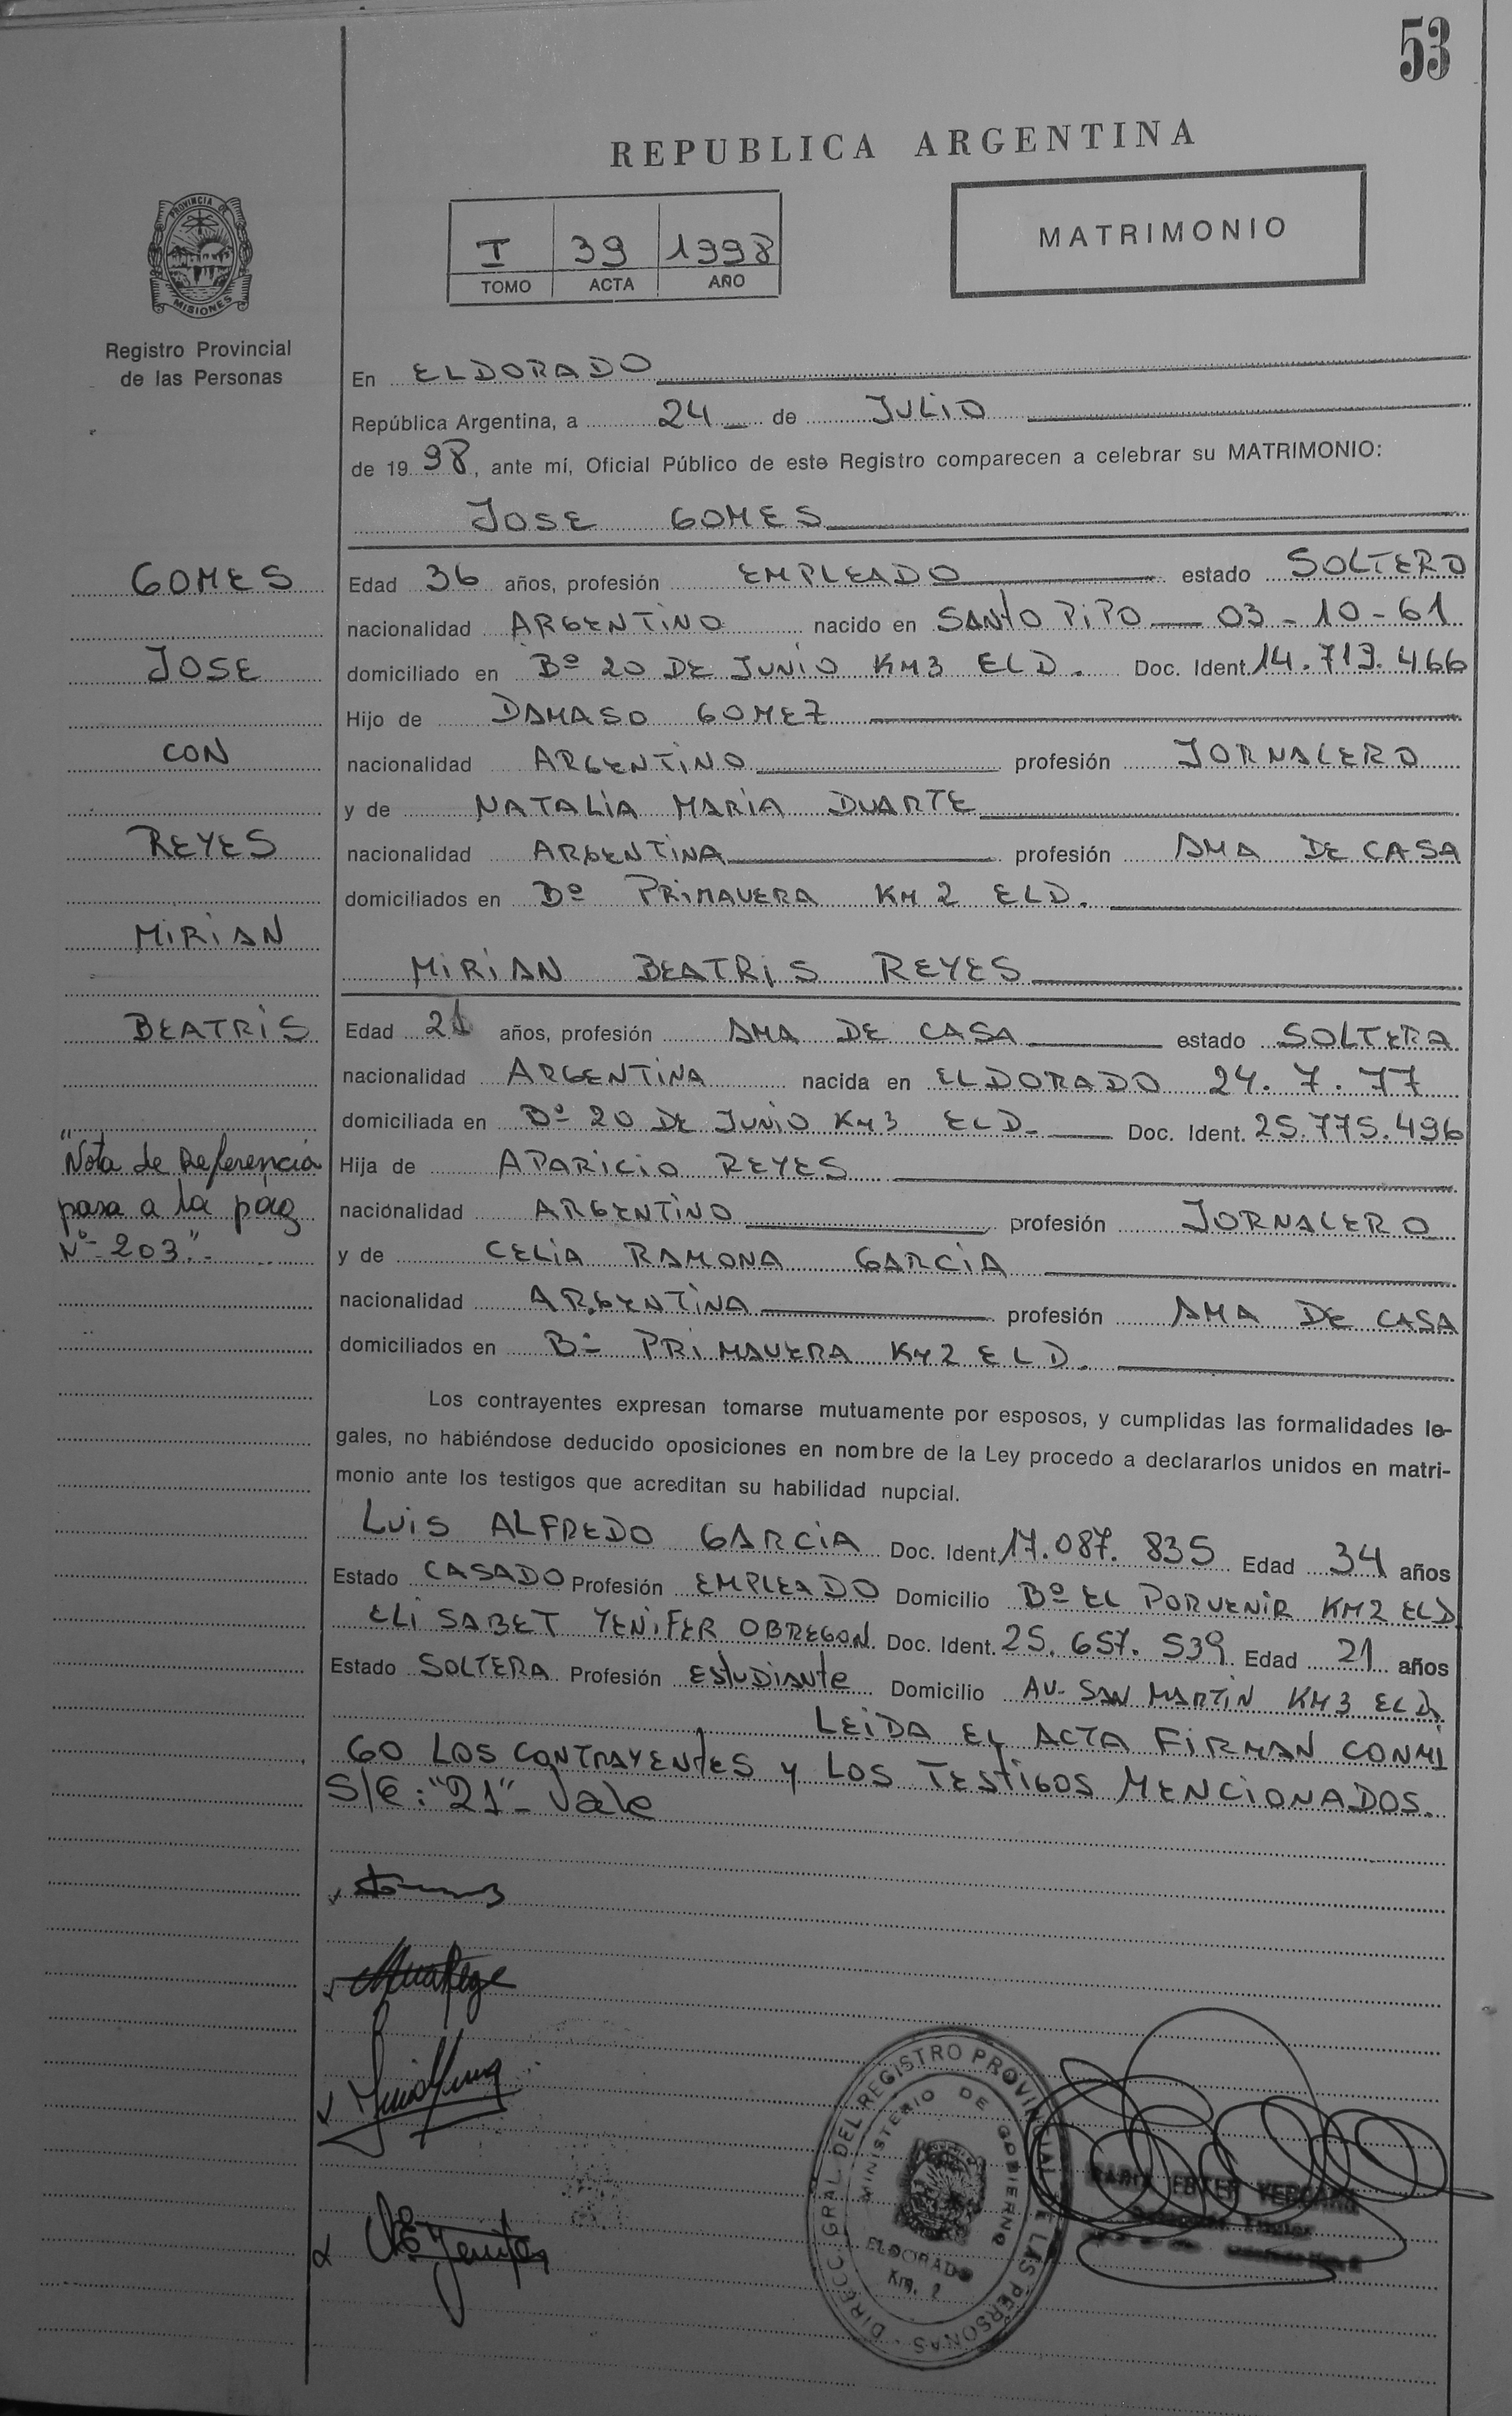 53
REPUBLICA ARGENTINA
PROVINCIA DE
MISIONES
Registro Provincial
de las Personas
I 39 1998
TOMO ACTA AÑO
MATRIMONIO
En ELDORADO
República Argentina, a 24 de JULIO
de 1998, ante mí, Oficial Público de este Registro comparecen a celebrar su MATRIMONIO:
JOSE GOMES
GOMES
JOSE
CON
REYES
MIRIAN
BEATRIS
"Nota de Referencia
pasa a la pag
Nº 203"
Edad 36 años, profesión EMPLEADO estado SOLTERO
nacionalidad ARGENTINO nacido en SANTO PIPO 03-10-61
domiciliado en Bº 20 DE JUNIO KM3 ELD. Doc. Ident. 14.713.466
Hijo de DAMASO GOMEZ
nacionalidad ARGENTINO profesión JORNALERO
y de NATALIA MARIA DUARTE
nacionalidad ARGENTINA profesión AMA DE CASA
domiciliados en Bº PRIMAVERA KM 2 ELD.
MIRIAN BEATRIS REYES
Edad 21 años, profesión AMA DE CASA estado SOLTERA
nacionalidad ARGENTINA nacida en ELDORADO 24.7.77
domiciliada en Bº 20 DE JUNIO KM3 ELD. Doc. Ident. 25.775.496
Hija de APARICIO REYES
nacionalidad ARGENTINO profesión JORNALERO
y de CELIA RAMONA GARCIA
nacionalidad ARGENTINA profesión AMA DE CASA
domiciliados en Bº PRIMAVERA KM2 ELD.
Los contrayentes expresan tomarse mutuamente por esposos, y cumplidas las formalidades le-
gales, no habiéndose deducido oposiciones en nombre de la Ley procedo a declararlos unidos en matri-
monio ante los testigos que acreditan su habilidad nupcial.
LUIS ALFREDO GARCIA Doc. Ident. 17.087.835 Edad 34 años
Estado CASADO Profesión EMPLEADO Domicilio Bº EL PORVENIR KM2 ELD
ELISABET YENIFER OBREGON Doc. Ident. 25.657.539 Edad 21 años
Estado SOLTERA Profesión ESTUDIANTE Domicilio AV. SAN MARTIN KM3 ELD.
LEIDA EL ACTA FIRMAN CONMI
GO LOS CONTRAYENTES Y LOS TESTIGOS MENCIONADOS.
S/E: "21" - Vale
DIRECC. GRAL. DEL REGISTRO PROVINCIAL DE LAS PERSONAS
MINISTERIO DE GOBIERNO
ELDORADO
Km. 2